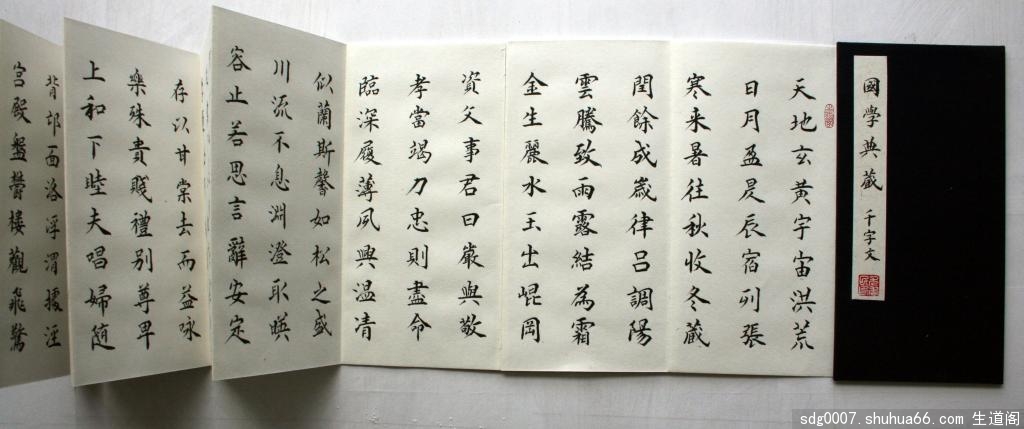 國學典藏 千字文
天地玄黃宇宙洪荒
日月盈昃辰宿列張
寒来暑往秋收冬藏
閏餘成歲律吕調陽
雲騰致雨露結為霜
金生麗水玉出崐岡
資父事君曰嚴與敬
孝當竭力忠則盡命
臨深履薄夙興温凊
似蘭斯馨如松之盛
川流不息淵澄取暎
容止若思言辭安定
存以甘棠去而益咏
樂殊貴賤禮别尊卑
上和下睦夫唱婦随
背邙面洛浮渭據涇
宫殿盤鬱樓觀飛驚
sdg0007.shuhua66.com 生道阁